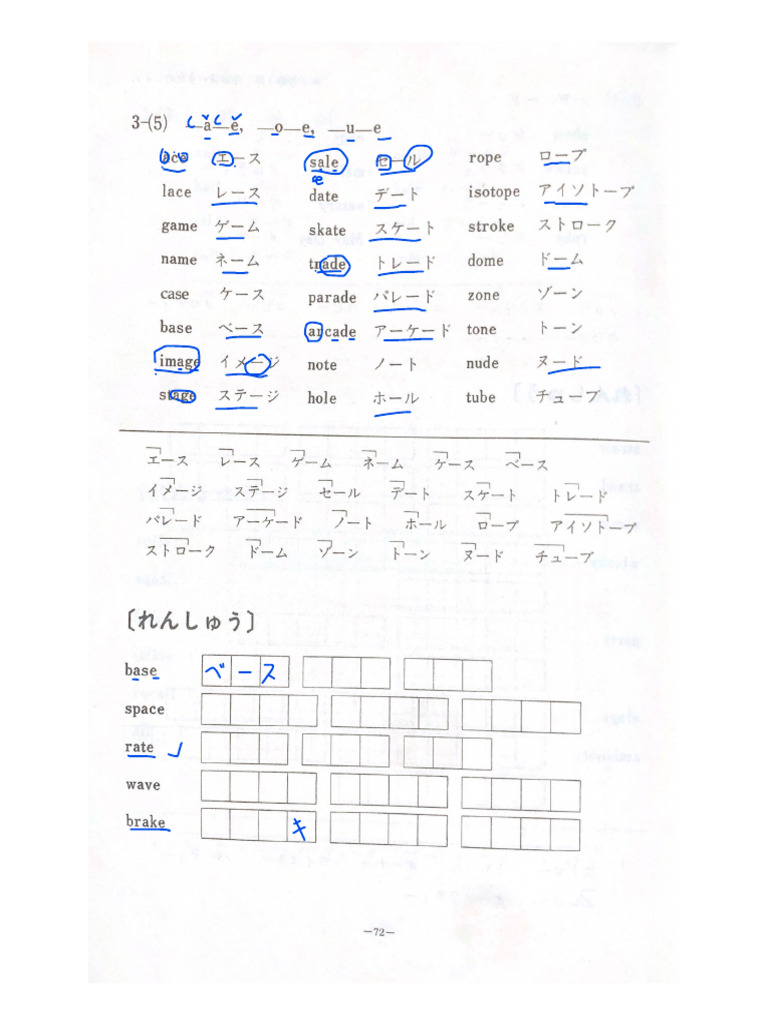 3-(5) —a—e, —o—e, —u—e
ace エース sale セール rope ロープ
lace レース date デート isotope アイソトープ
game ゲーム skate スケート stroke ストローク
name ネーム trade トレード dome ドーム
case ケース parade パレード zone ゾーン
base ベース arcade アーケード tone トーン
image イメージ note ノート nude ヌード
stage ステージ hole ホール tube チューブ
エース レース ゲーム ネーム ケース ベース
イメージ ステージ セール デート スケート トレード
パレード アーケード ノート ホール ロープ アイソトープ
ストローク ドーム ゾーン トーン ヌード チューブ
〔れんしゅう〕
base ベース
space
rate
wave
brake キ
—72—